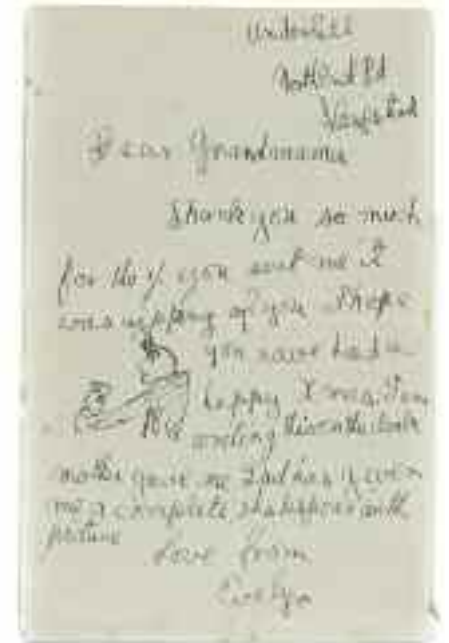 Underhill
North End Rd
Hampstead
Dear Grandmama
Thank you so much
for the you sent me it
was ripping of you I hope
you have had a
happy Xmas I am
writing this on the
mother gave me Dad has given
me a complete shakespeare with
picture
love from
Evelyn